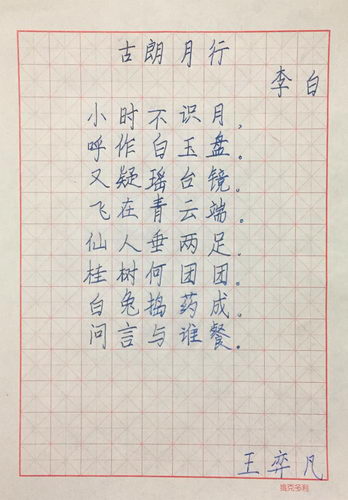 古朗月行
李白
小时不识月。
呼作白玉盘。
又疑瑶台镜。
飞在青云端。
仙人垂两足。
桂树何团团。
白兔捣药成。
问言与谁餐。
王弈凡